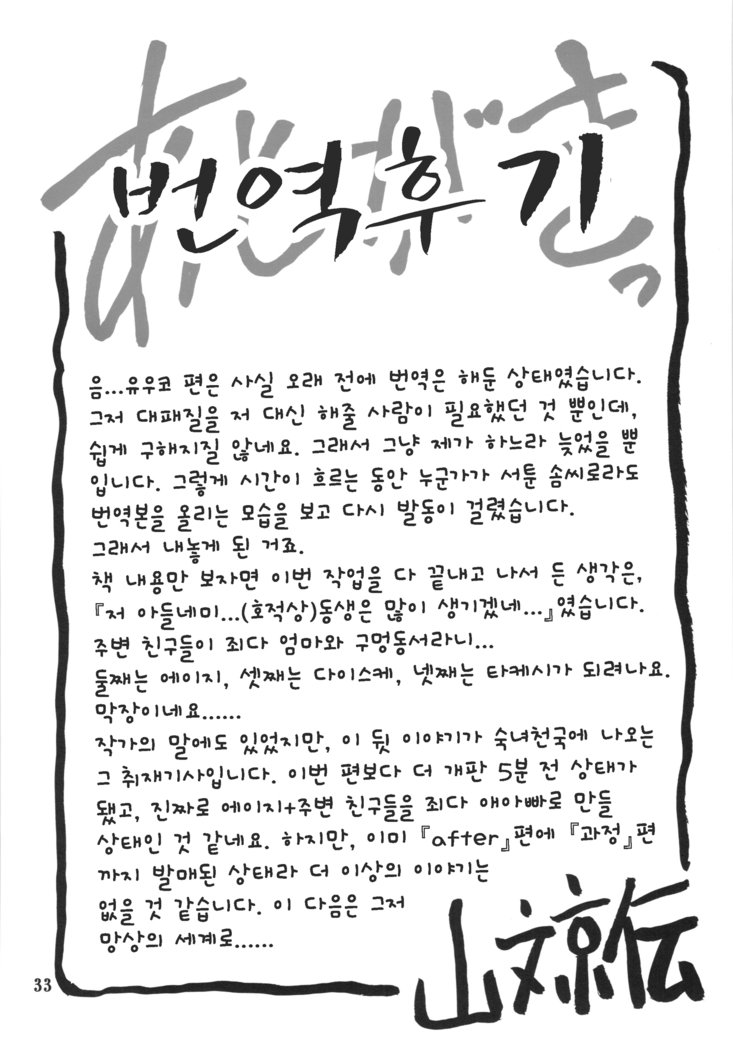 あとがきっ
번역후기
음...유우코 편은 사실 오래 전에 번역은 해둔 상태였습니다.
그저 대패질을 저 대신 해줄 사람이 필요했던 것 뿐인데,
쉽게 구해지질 않네요. 그래서 그냥 제가 하느라 늦었을 뿐
입니다. 그렇게 시간이 흐르는 동안 누군가가 서툰 솜씨로라도
번역본을 올리는 모습을 보고 다시 발동이 걸렸습니다.
그래서 내놓게 된 거죠.
책 내용만 보자면 이번 작업을 다 끝내고 나서 든 생각은,
『저 아들네미...(호적상)동생은 많이 생기겠네...』였습니다.
주변 친구들이 죄다 엄마와 구멍동서라니...
둘째는 에이지, 셋째는 다이스케, 넷째는 타케시가 되려나요.
막장이네요......
작가의 말에도 있었지만, 이 뒷 이야기가 숙녀천국에 나오는
그 취재기사입니다. 이번 편보다 더 개판 5분 전 상태가
됐고, 진짜로 에이지+주변 친구들을 죄다 애아빠로 만들
상태인 것 같네요. 하지만, 이미 『after』편에 『과정』편
까지 발매된 상태라 더 이상의 이야기는
없을 것 같습니다. 이 다음은 그저
망상의 세계로......
山文京伝
33